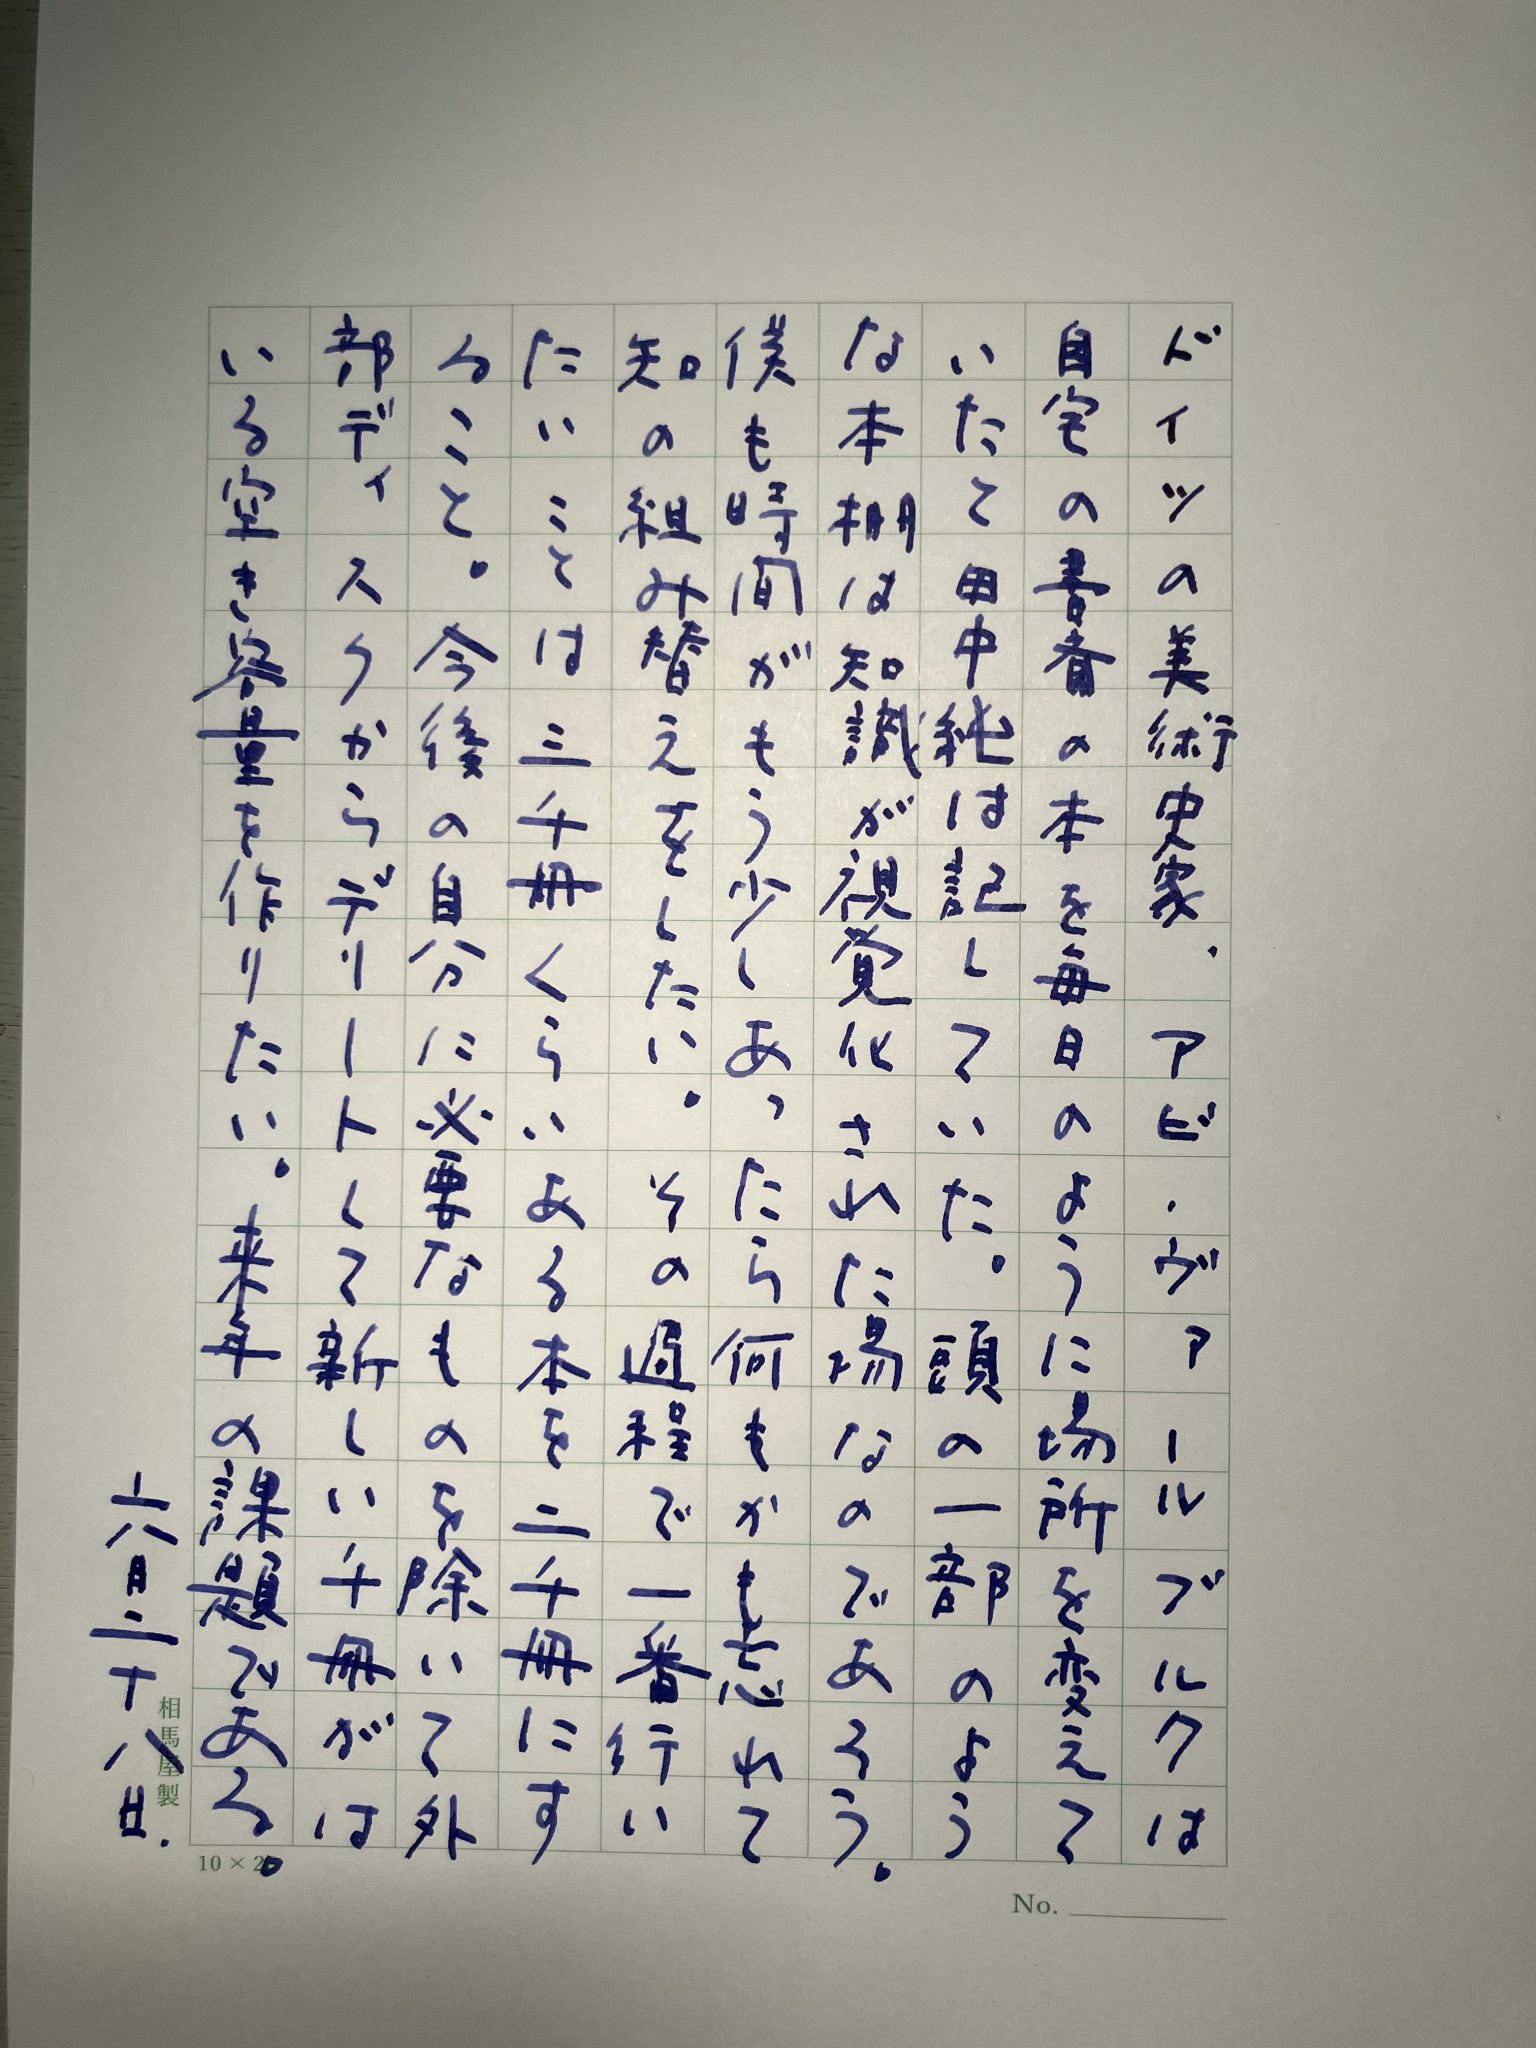 ドイツの美術史家、アビ・ヴァールブルクは
自宅の書斎の本を毎日のように場所を変えて
いたと田中純は記していた。頭の一部のよう
な本棚は知識が視覚化された場なのであろう。
僕も時間がもう少しあったら何もかも忘れて
知の組み替えをしたい。その過程で一番行い
たいことは三千冊くらいある本を二千冊にす
ること。今後の自分に必要なものを除いて外
部ディスクからデリートして新しい千冊がは
いる空き容量を作りたい。来年の課題である。
六月二十八日.
相馬屋製
10×2
No.